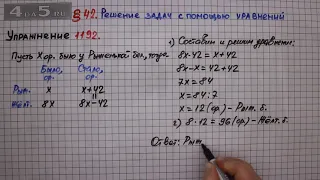 4 из 5
§ 42. Решение задач с помощью уравнений
Упражнение 1192.
Пусть х ор. было у Рыженькой бел., тогда
Было, ор. Стало, ор.
Рыж. х х+42
||
Жёлт. 8х 8х-42
1) Составим и решим уравнение:
8х-42 = х+42
8х-х = 42+42
7х = 84
х = 84:7
х = 12 (ор.) - Рыж. б.
2) 8·12 = 96 (ор.) - Жёлт. б.
Ответ: Рыж